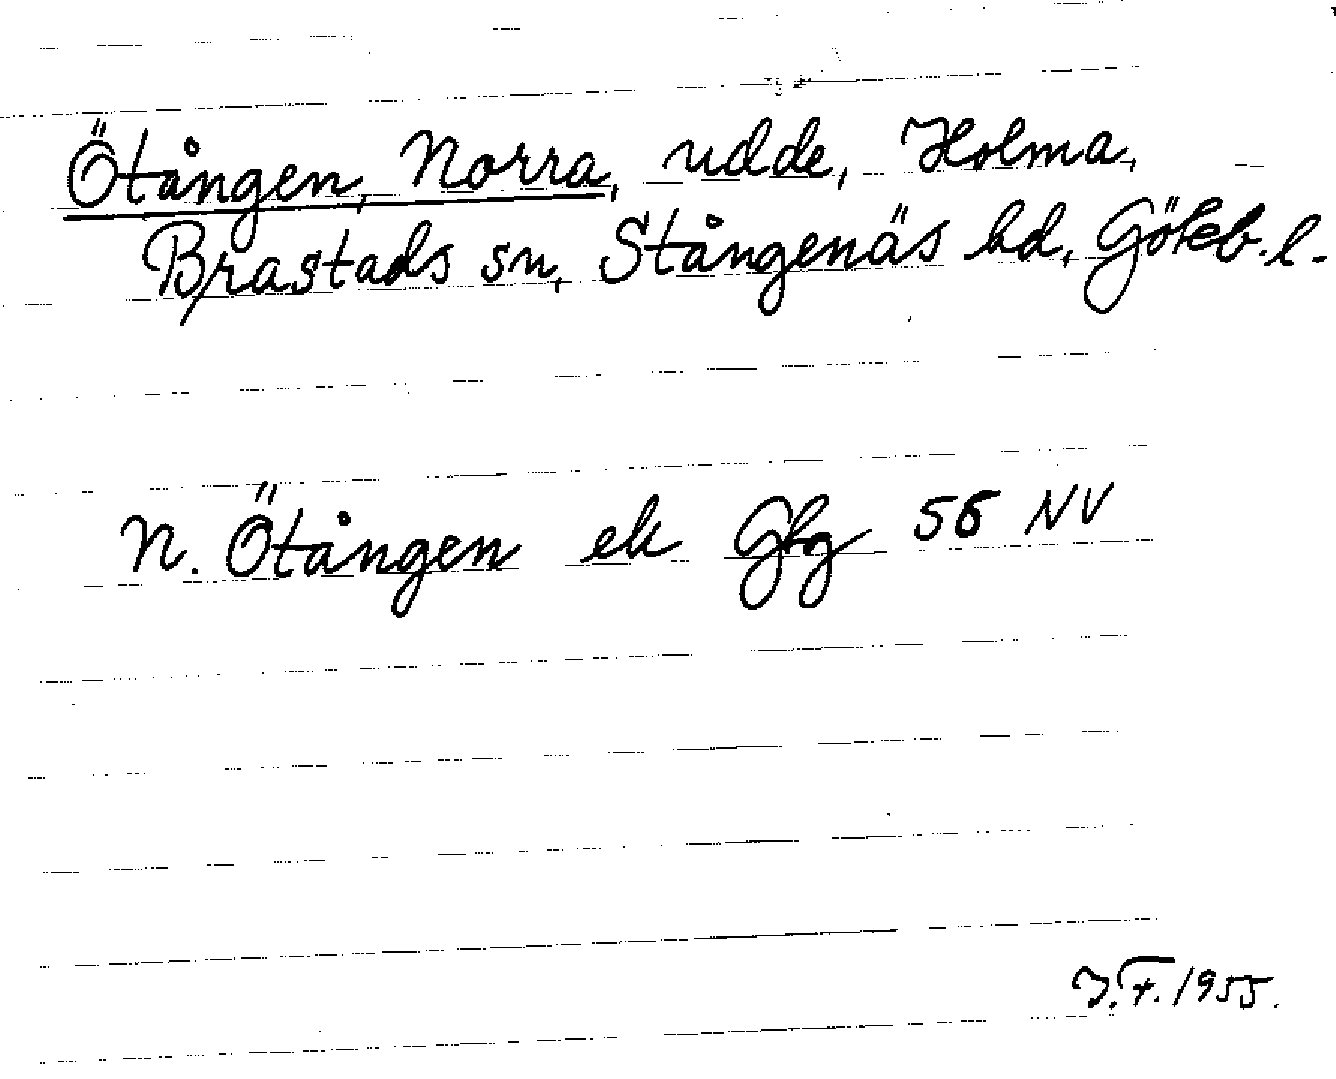 Ötången, Norra, udde, Holma,
Brastads sn, Stångenäs hd, Göteb. l.
N. Ötången ek Gbg 56 NV
J.F. 1955.